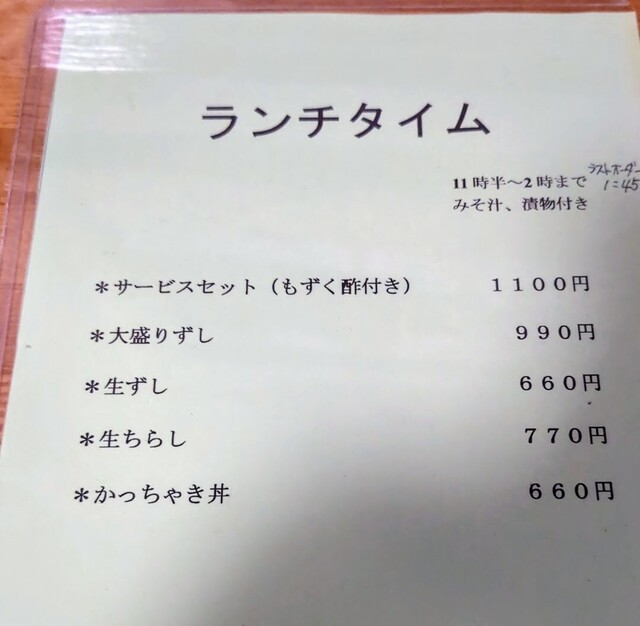 ランチタイム
ラストオーダー
11時半～2時まで 1:45
みそ汁、漬物付き
＊サービスセット（もずく酢付き） １１００円
＊大盛りずし ９９０円
＊生ずし ６６０円
＊生ちらし ７７０円
＊かっちゃき丼 ６６０円